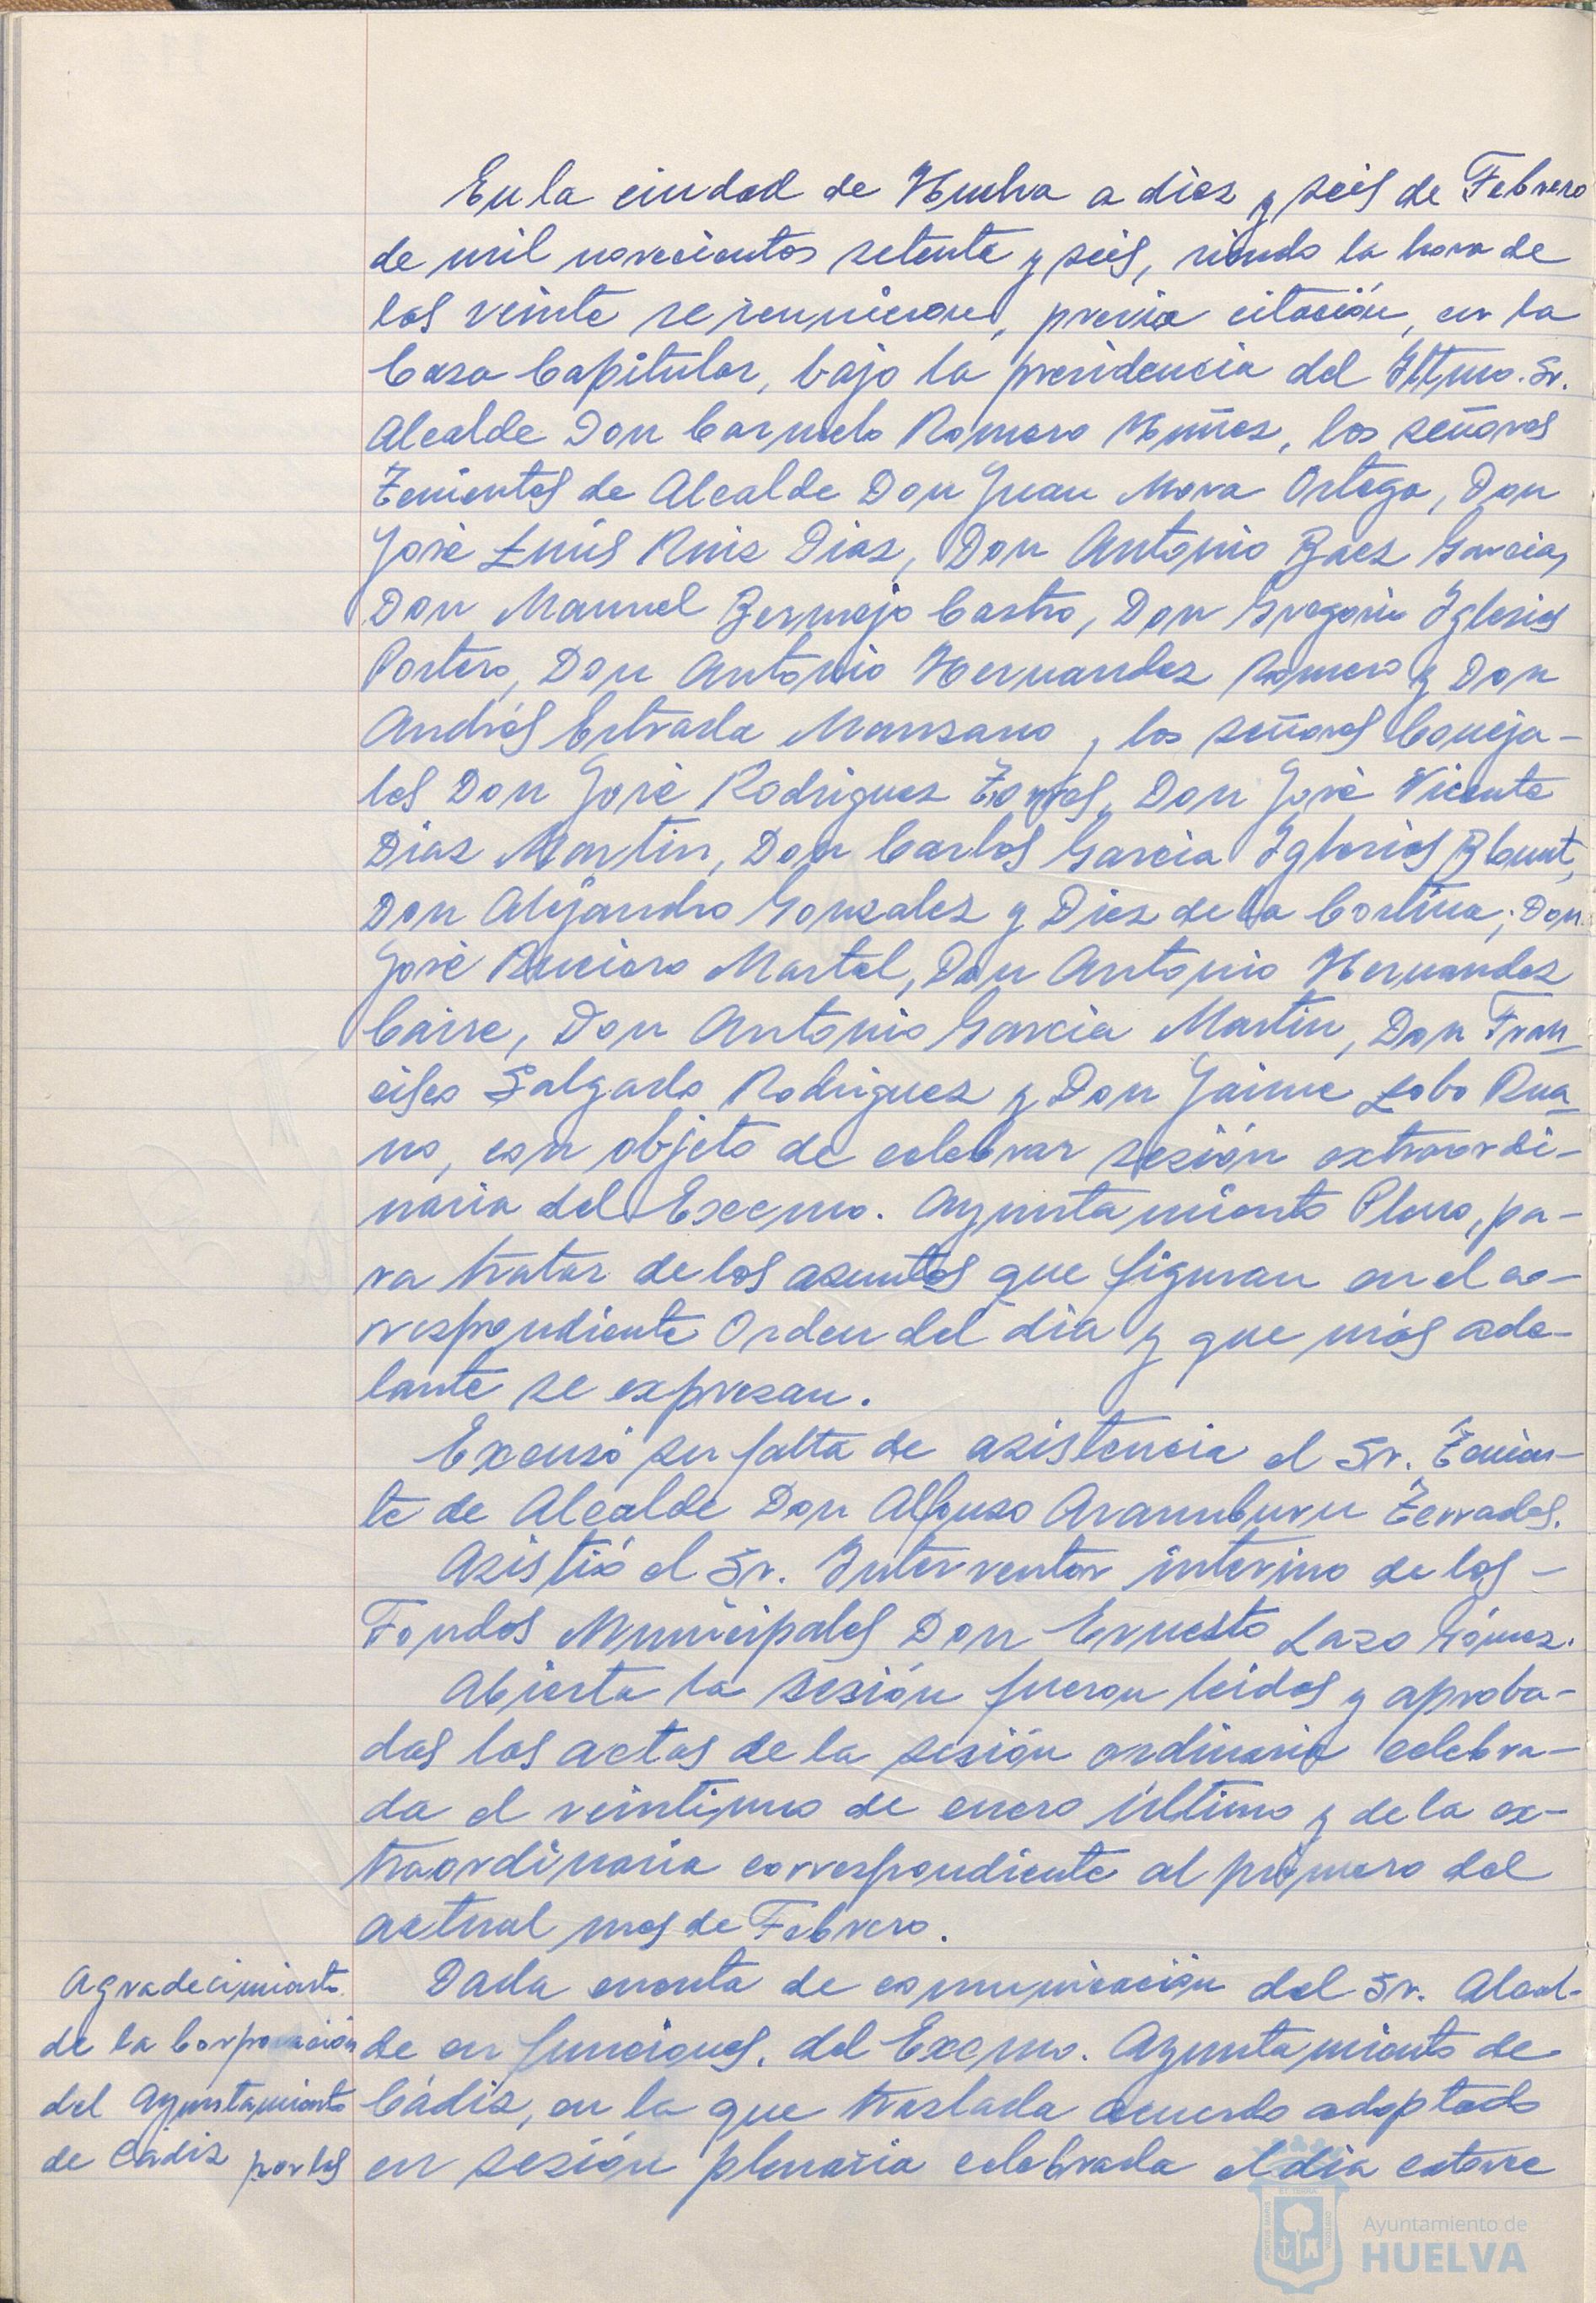 En la ciudad de Huelva a diez y seis de Febrero
de mil novecientos setenta y seis, siendo la hora de
las veinte se reunieron, previa citación, en la
Casa Capitular, bajo la presidencia del Iltmo. Sr.
Alcalde Don Carmelo Romero Muñoz, los señores
Tenientes de Alcalde Don Juan Mora Ortega, Don
José Luis Ruiz Diaz, Don Antonio Baez Garcia,
Don Manuel Bermejo Castro, Don Gregorio Iglesias
Portero, Don Antonio Hernandez Romero y Don
Andrés Estrada Manzano, los señores Conceja-
les Don José Rodriguez Torres, Don José Vicente
Diaz Martin, Don Carlos Garcia Iglesias Blount,
Don Alejandro Gonzalez y Diez de la Cortina, Don
José Ruciero Martel, Don Antonio Hernandez
Caire, Don Antonio Garcia Martin, Don Fran-
cisco Salgado Rodriguez y Don Jaime Lobo Rua-
no, con objeto de celebrar sesión extraordi-
naria del Excmo. Ayuntamiento Pleno, pa-
ra tratar de los asuntos que figuran en el co-
rrespondiente Orden del dia y que más ade-
lante se expresan.
Excusó su falta de asistencia el Sr. Tenien-
te de Alcalde Don Alfonso Aramburu Terrades.
Asistió el Sr. Interventor interino de los -
Fondos Municipales Don Ernesto Lazo Gómez.
Abierta la sesión fueron leidas y aproba-
das las actas de la sesión ordinaria celebra-
da el veintiuno de enero último y de la ex-
traordinaria correspondiente al primero del
actual mes de Febrero.
Agradecimiento
de la Corporación
del Ayuntamiento
de Cádiz por los
Dada cuenta de comunicación del Sr. Alcal-
de en funciones, del Excmo. Ayuntamiento de
Cádiz, en la que traslada acuerdo adoptado
en sesión plenaria celebrada el dia catorce
Ayuntamiento de
HUELVA